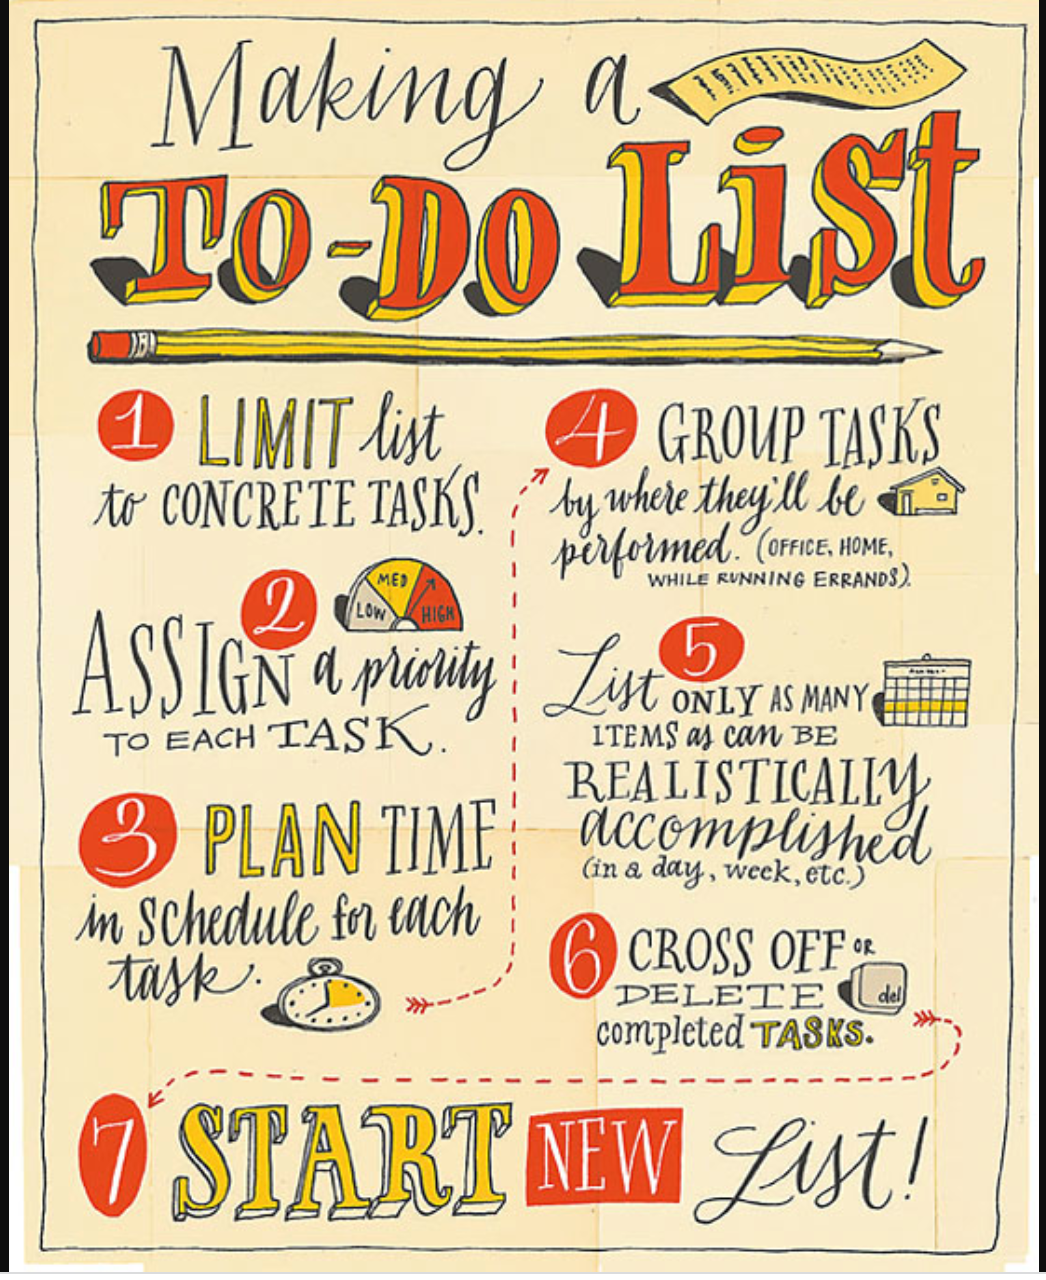 Making a
TO-DO List
1 LIMIT list
to CONCRETE TASKS.
2
LOW MED HIGH
ASSIGN a priority
TO EACH TASK.
3 PLAN TIME
in SCHEDULE for each
task.
4 GROUP TASKS
by where they'll be
performed. (OFFICE, HOME,
WHILE RUNNING ERRANDS).
5
List ONLY AS MANY
ITEMS as can BE
REALISTICALLY
accomplished
(in a day, week, etc.)
6 CROSS OFF OR
DELETE del
completed TASKS.
7 START NEW List!